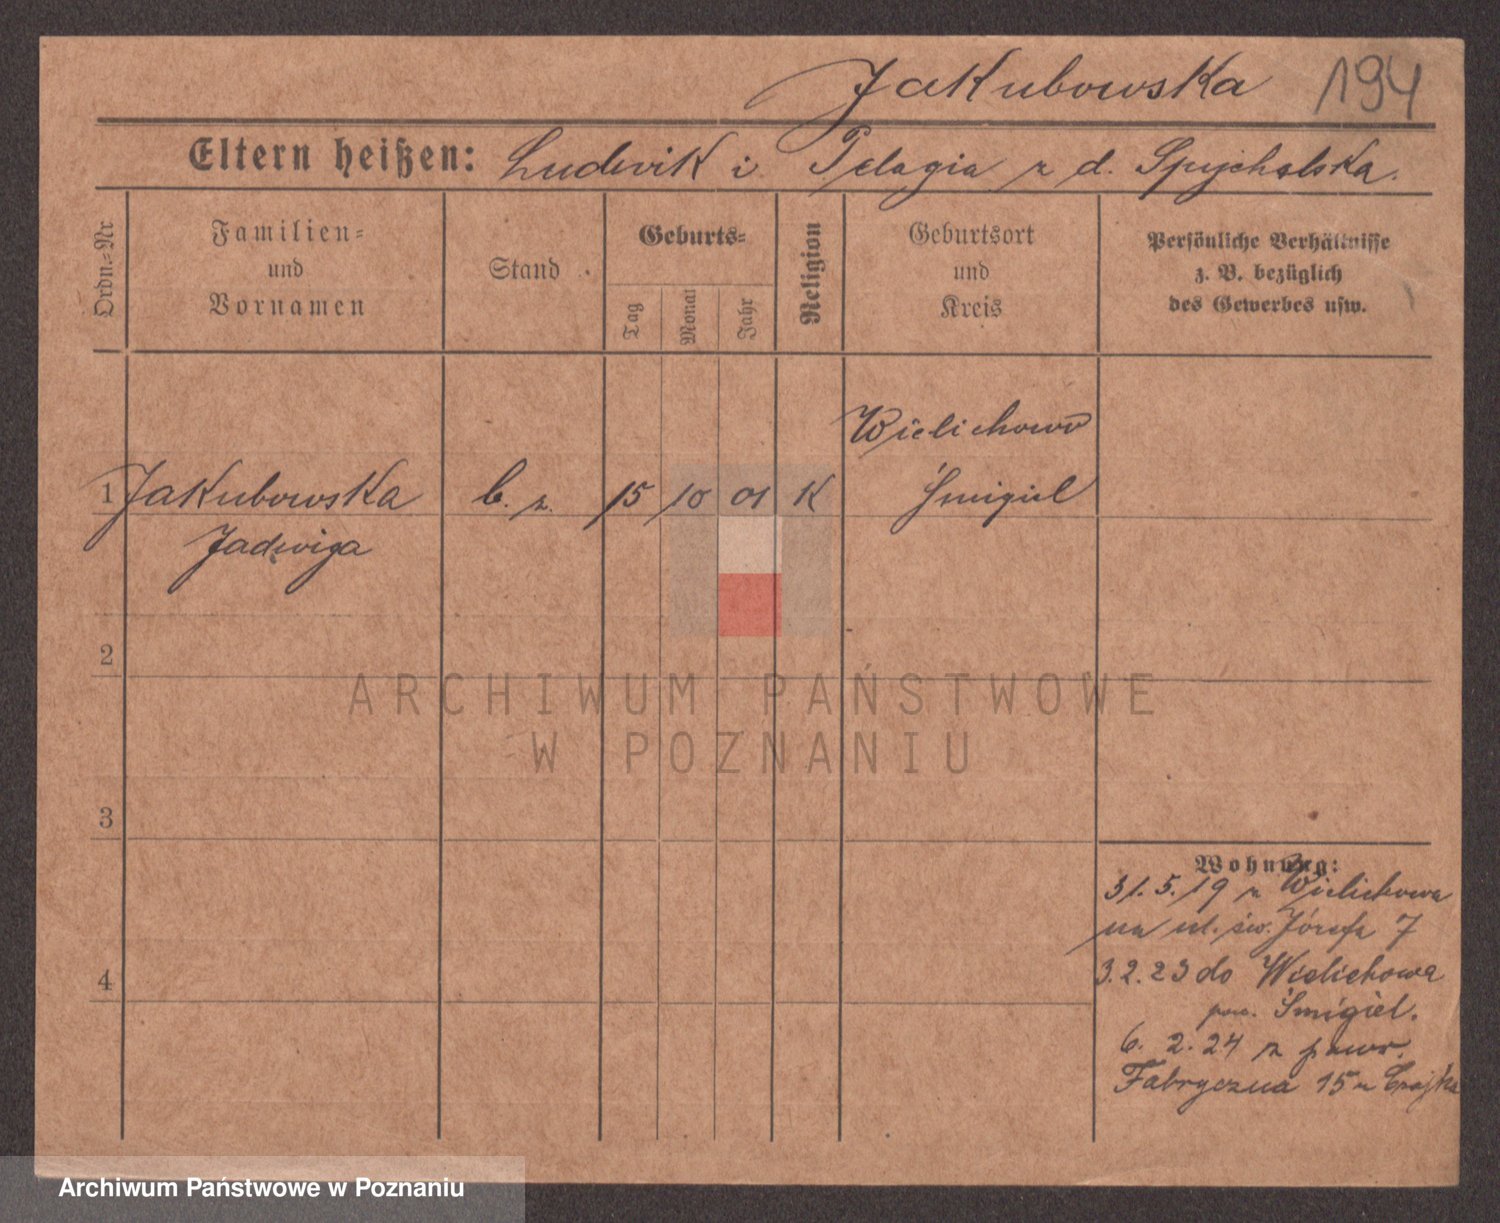 Jakubowska 194
Eltern heißen: Ludwik i Pelagia z d. Spychalska.
Ordn.-Nr
Familien-
und
Vornamen
Stand
Geburts-
Tag
Monat
Jahr
Religion
Geburtsort
und
Kreis
Persönliche Verhältnisse
z. B. bezüglich
des Gewerbes usw.
Wielichowo
1 Jakubowska b. z. 15 10 01 K Śmigiel
Jadwiga
2
ARCHIWUM PAŃSTWOWE
W POZNANIU
3
4
Wohnung:
31.5.19 z Wielichowa
na ul. św. Józefa 7
3.2.23 do Wielichowa
pow. Śmigiel.
6. 2. 24 z powr.
Fabryczna 15 u
Archiwum Państwowe w Poznaniu